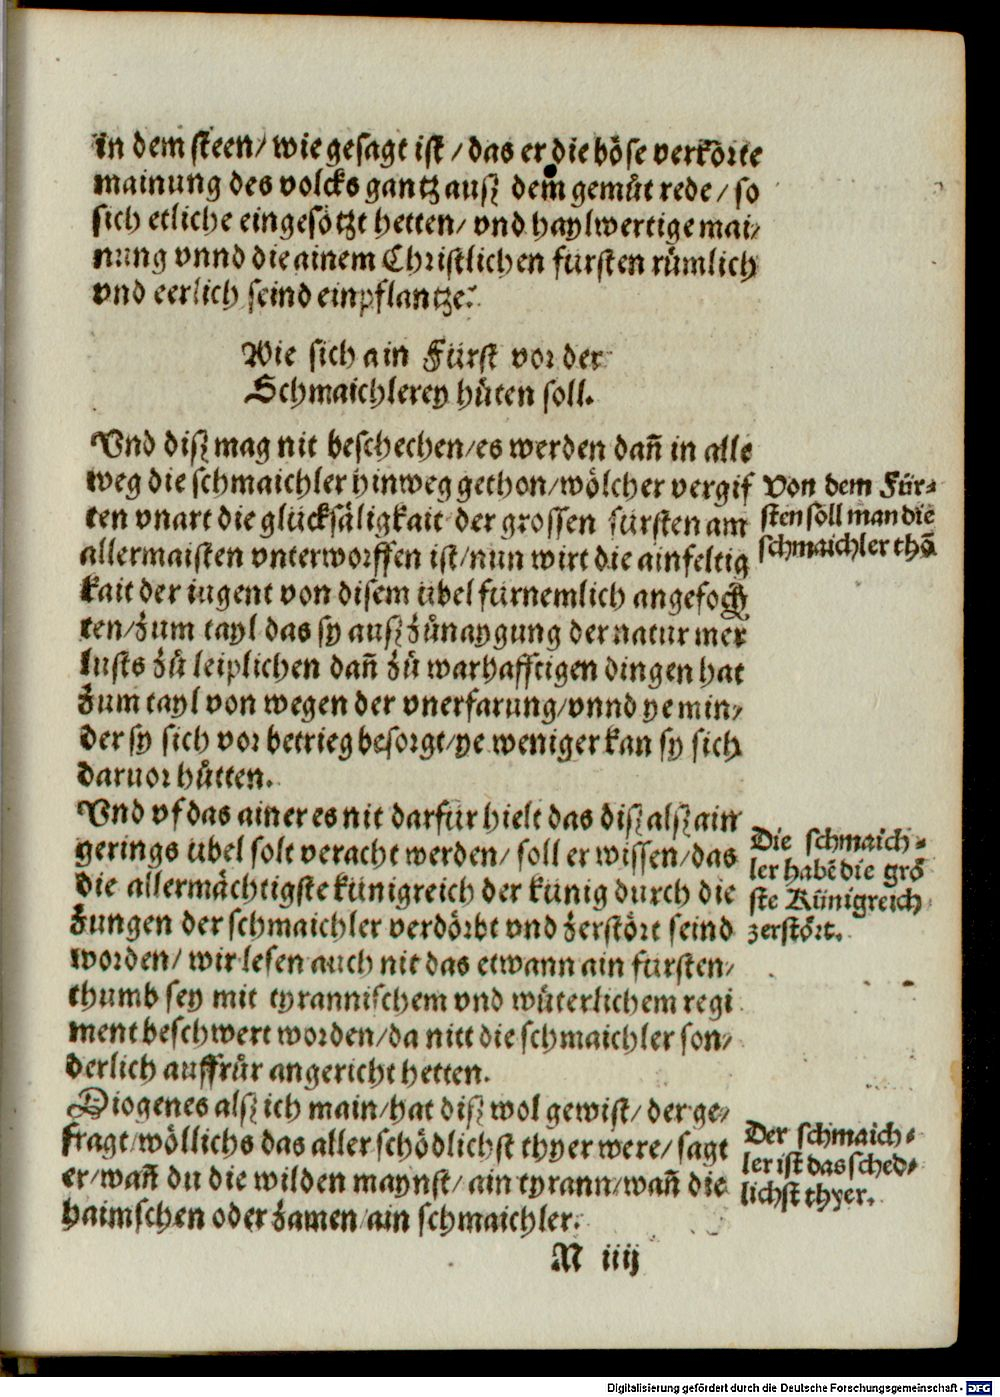 in dem steen/ wie gesagt ist / das er die böse verkörte
mainung des volcks gantz ausz dem gemůt rede/ so
sich etliche eingesötzt hetten/ vnd haylwertige mai/
nung vnnd die ainem Christlichen fürsten růmlich
vnd eerlich seind einpflantze.
Wie sich ain Fürst vor der
Schmaichlerey hůten soll.
Vnd disz mag nit beschechen/es werden dañ in alle
weg die schmaichler hinweg gethon/wölcher vergif
ten vnart die glücksäligkait der grossen fürsten am
allermaisten vnterworffen ist/nun wirt die ainfeltig
kait der iugent von disem übel fürnemlich angefoch
ten/zum tayl das sy ausz zůnaygung der natur mer
lusts zů leiplichen dañ zů warhafftigen dingen hat
zum tayl von wegen der vnerfarung/vnnd ye min/
der sy sich vor betrieg besorgt/ye weniger kan sy sich
daruor hůtten.
Von dem Für⸗
sten soll man die
schmaichler thõ
Vnd vf das ainer es nit darfür hielt das disz alsz ain
gerings übel solt veracht werden/ soll er wissen/das
die allermächtigste künigreich der künig durch die
zungen der schmaichler verdörbt vnd zerstört seind
worden/ wir lesen auch nit das etwann ain fürsten/
thumb sey mit tyrannischem vnd wůterlichem regi
ment beschwert worden/da nitt die schmaichler son/
derlich auffrůr angericht hetten.
Die schmaich⸗
ler habẽ die grõ
ste Künigreich
zerstört.
Diogenes alsz ich main/hat disz wol gewist/ der ge/
fragt/wöllichs das aller schödlichst thyer were/ sagt
er/wañ du die wilden maynst/ ain tyrann/wañ die
haimschen oder zamen/ain schmaichler.
Der schmaich⸗
ler ist das sched⸗
lichst thyer.
M iiij
Digitalisierung gefördert durch die Deutsche Forschungsgemeinschaft - DFG